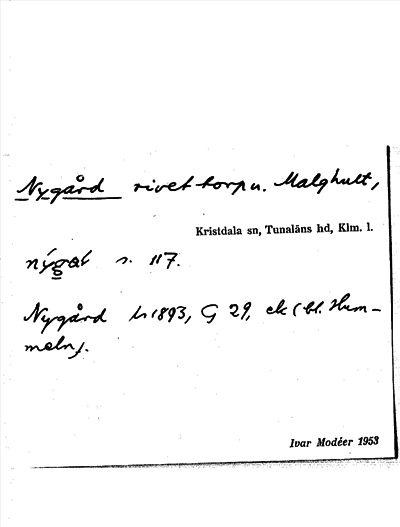 Nygård rivet torp u. Malghult,
Kristdala sn, Tunaläns hd, Klm. l.
s. 117.
Nygård hs 1893, G 29, ek (bl. Hum-
meln).
Ivar Modéer 1953